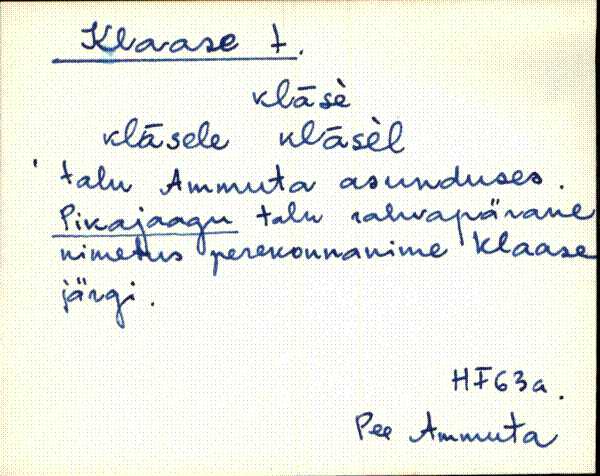 Klaase t.
klāsè
klāsele klāsèl
talu Ammuta asunduses.
Pikajaagu talu rahvapärane
nimetus perekonnanime Klaase
järgi.
HF63a.
Pee Ammuta